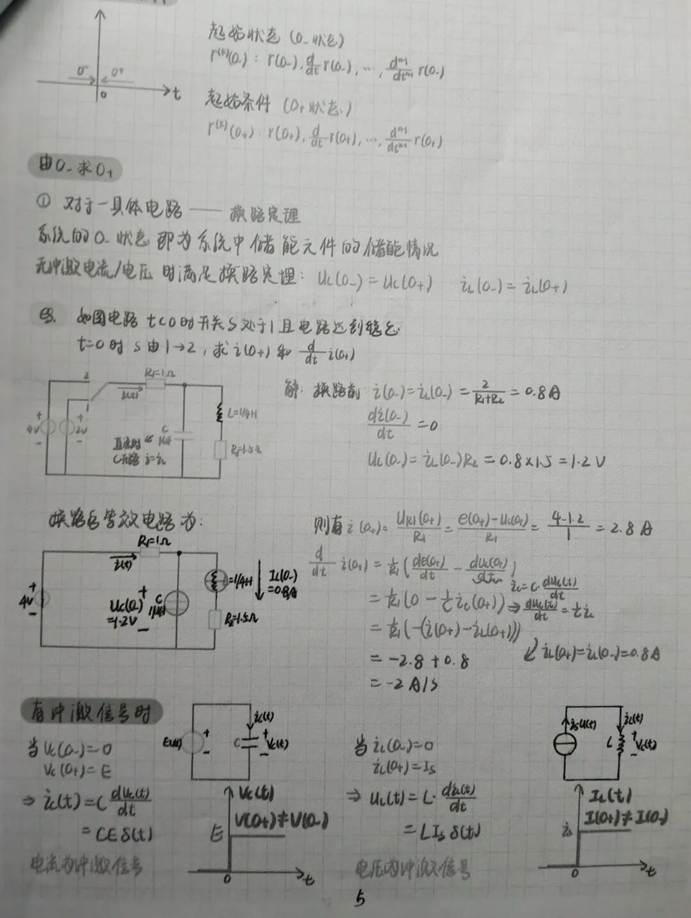 起始状态 (0-状态)
r^(k)(0-) : r(0-), d/dt r(0-), ..., d^(n-1)/dt^(n-1) r(0-)
0- 0+
0 t
起始条件 (0+状态)
r^(k)(0+) : r(0+), d/dt r(0+), ..., d^(n-1)/dt^(n-1) r(0+)
由0-求0+
① 对于一具体电路 —— 换路定理
系统的0-状态即为系统中储能元件的储能情况
无冲激电流/电压时满足换路定理: Uc(0-) = Uc(0+) iL(0-) = iL(0+)
如图电路 t<0时开关S处于1且电路达到稳态
t=0时 S由1→2, 求i(0+)和 d/dt i(0+)
2 R1=1Ω
i(t)
1
4V 2V
C 1F
L=1/4H
R2=1.5Ω
直流时
C开路 i=iL
解: 换路前 i(0-) = iL(0-) = 2/(R1+R2) = 0.8A
di(0-)/dt = 0
Uc(0-) = iL(0-)R2 = 0.8×1.5 = 1.2V
换路后等效电路为:
R1=1Ω
i(t)
4V
Uc(0-)
=1.2V
C
1F
=1/4H
IL(0-)
=0.8A
R2=1.5Ω
则有 i(0+) = UR1(0+)/R1 = (e(0+)-Uc(0+))/R1 = (4-1.2)/1 = 2.8A
d/dt i(0+) = 1/R1 (de(0+)/dt - duc(0+)/dt)
ic = C·duc(t)/dt
= 1/R1 (0 - 1/C ic(0+)) ⇒ duc(t)/dt = 1/C ic
= 1/R1 (-(i(0+)-iL(0+)))
iL(0+)=iL(0-)=0.8A
= -2.8+0.8
= -2 A/s
有冲激信号时
当 Vc(0-)=0
Vc(0+)=E
⇒ ic(t) = C dvc(t)/dt
= CEδ(t)
电流为冲激信号
Eu(t) C ic(t) Vc(t)
Vc(t)
V(0+)≠V(0-)
E
0 t
当 iL(0-)=0
iL(0+)=Is
⇒ UL(t) = L·diL(t)/dt
= LIsδ(t)
电压为冲激信号
isu(t) L iL(t) VL(t)
IL(t)
I(0+)≠I(0-)
is
0 t
5